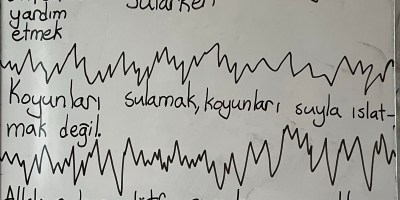 sularken
yardım
etmek
Koyunları sulamak, koyunları suyla ıslat-
mak değil.